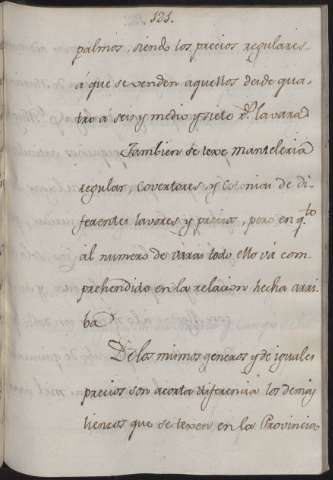 131.
palmos, siendo los precios regulares
á que se venden aquellos desde qua-
tro á seis y medio y siete r.s la vara
Tambien se texe manteleria
regular, covertores, y Colonias de di-
ferentes lavores y precios, pero en q.to
al numero de varas todo ello vá com
prehendido en la relacion hecha arri
ba
De los mismos generos y de iguales
precios son acorta diferencia los demas
lienzos que se texen en la Provincia